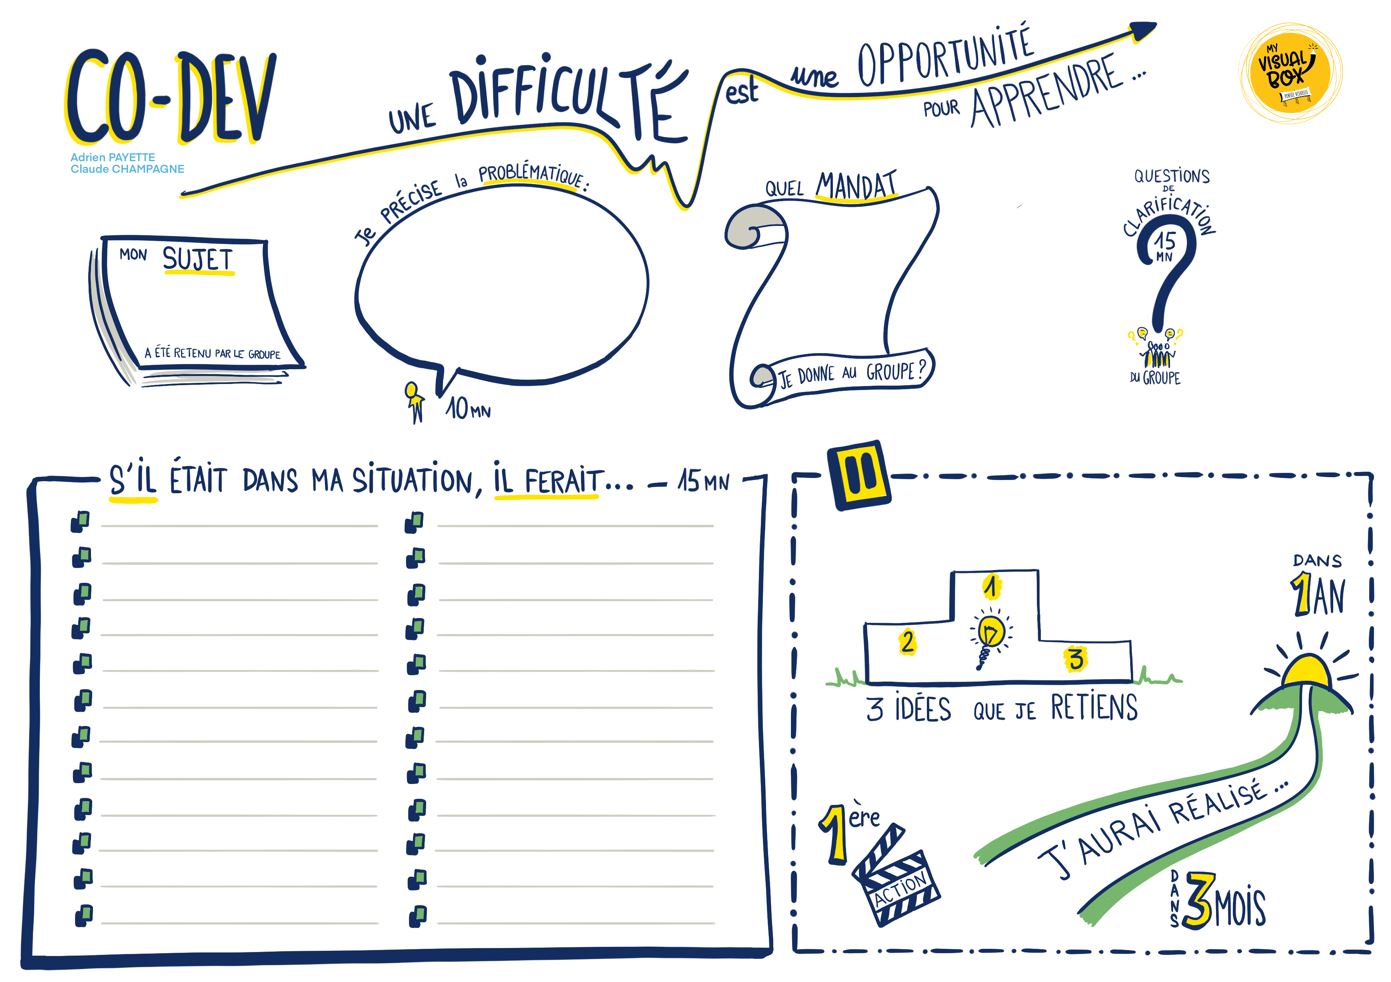 CO-DEV
Adrien PAYETTE
Claude CHAMPAGNE
UNE DIFFICULTÉ est une OPPORTUNITÉ
POUR APPRENDRE ...
MY
VISUAL
BOX
MON SUJET
A ÉTÉ RETENU PAR LE GROUPE
Je PRÉCISE la PROBLÉMATIQUE :
10 MN
QUEL MANDAT
JE DONNE AU GROUPE ?
QUESTIONS
DE
CLARIFICATION
15
MN
DU GROUPE
S'IL ÉTAIT DANS MA SITUATION, IL FERAIT... – 15 MN
1
2
3
3 IDÉES QUE JE RETIENS
DANS
1 AN
J'AURAI RÉALISÉ ...
1ère
ACTION
DANS 3 MOIS